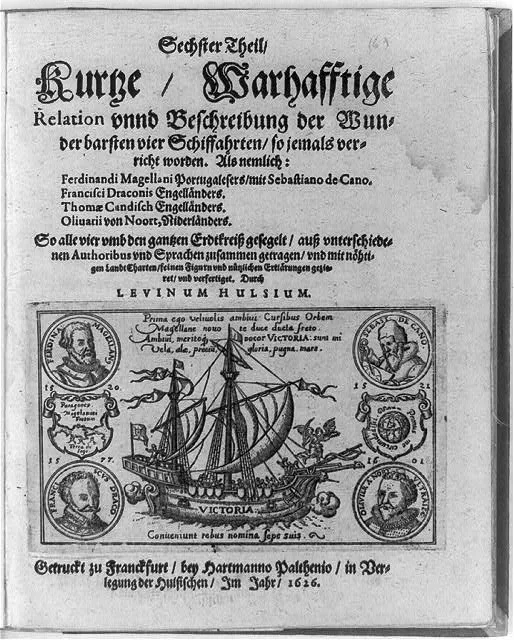 (6)
Sechster Theil/
Kurtze / Warhafftige
Relation vnnd Beschreibung der Wun-
derbarsten vier Schiffahrten/ so jemals ver-
richt worden. Als nemlich:
Ferdinandi Magellani Portugalesers/ mit Sebastiano de Cano.
Francisci Draconis Engelländers.
Thomæ Candisch Engelländers.
Oliuarii von Noort, Niderländers.
So alle vier vmb den gantzen Erdtkreiß gesegelt/ auß vnterschiede-
nen Authoribus vnd Sprachen zusammen getragen/ vnd mit nöhti-
gen Landt Charten/ feinen Figurn vnd nützlichen Erklärungen gezie-
ret/ vnd verfertiget. Durch
LEVINUM HULSIUM.
Prima ego velivolis ambivi Cursibus Orbem
Magellane novo te duce ducta freto.
Ambivi, meritoq; vocor VICTORIA: sunt mi
Vela, alæ, precium, gloria, pugna, mare.
FERDINA. MAGELLANUS
DE CANO.
1520.
1521
Magellanicum
Fretum
1577.
1601
FRANCISCVS DRACO
VICTORIA.
Conveniunt rebus nomina sepe suis.
Getruckt zu Franckfurt / bey Hartmanno Palthenio / in Ver-
legung der Hulsischen / Im Jahr / 1626.